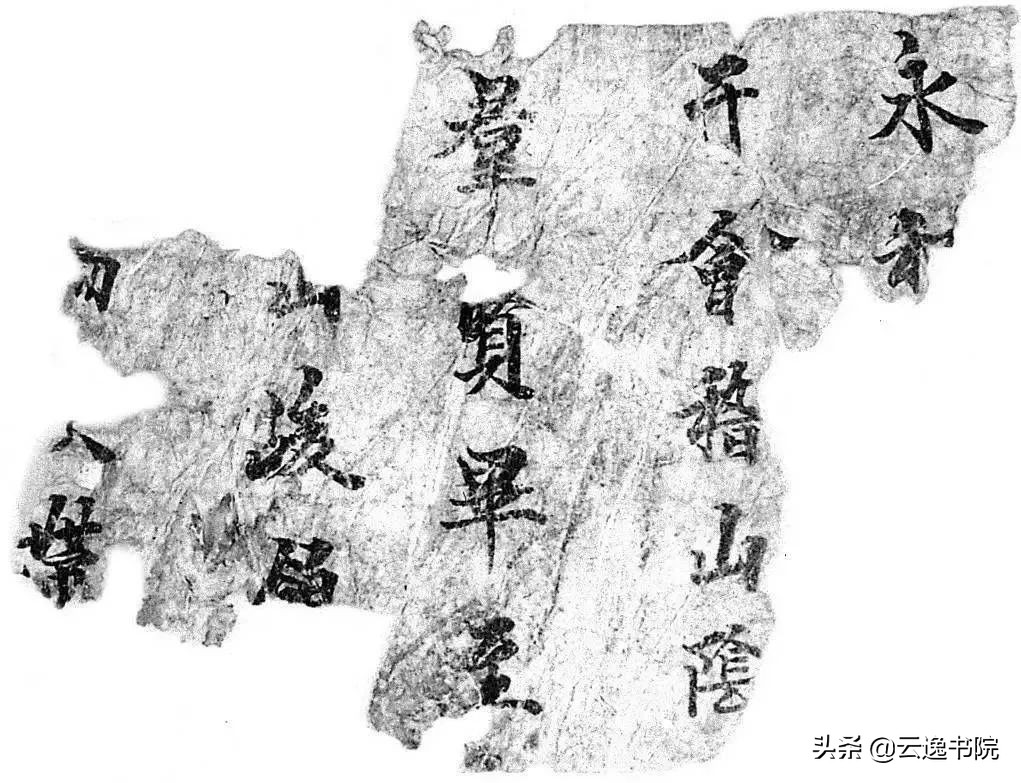 永和
于會稽山陰
羣賢畢至
山峻